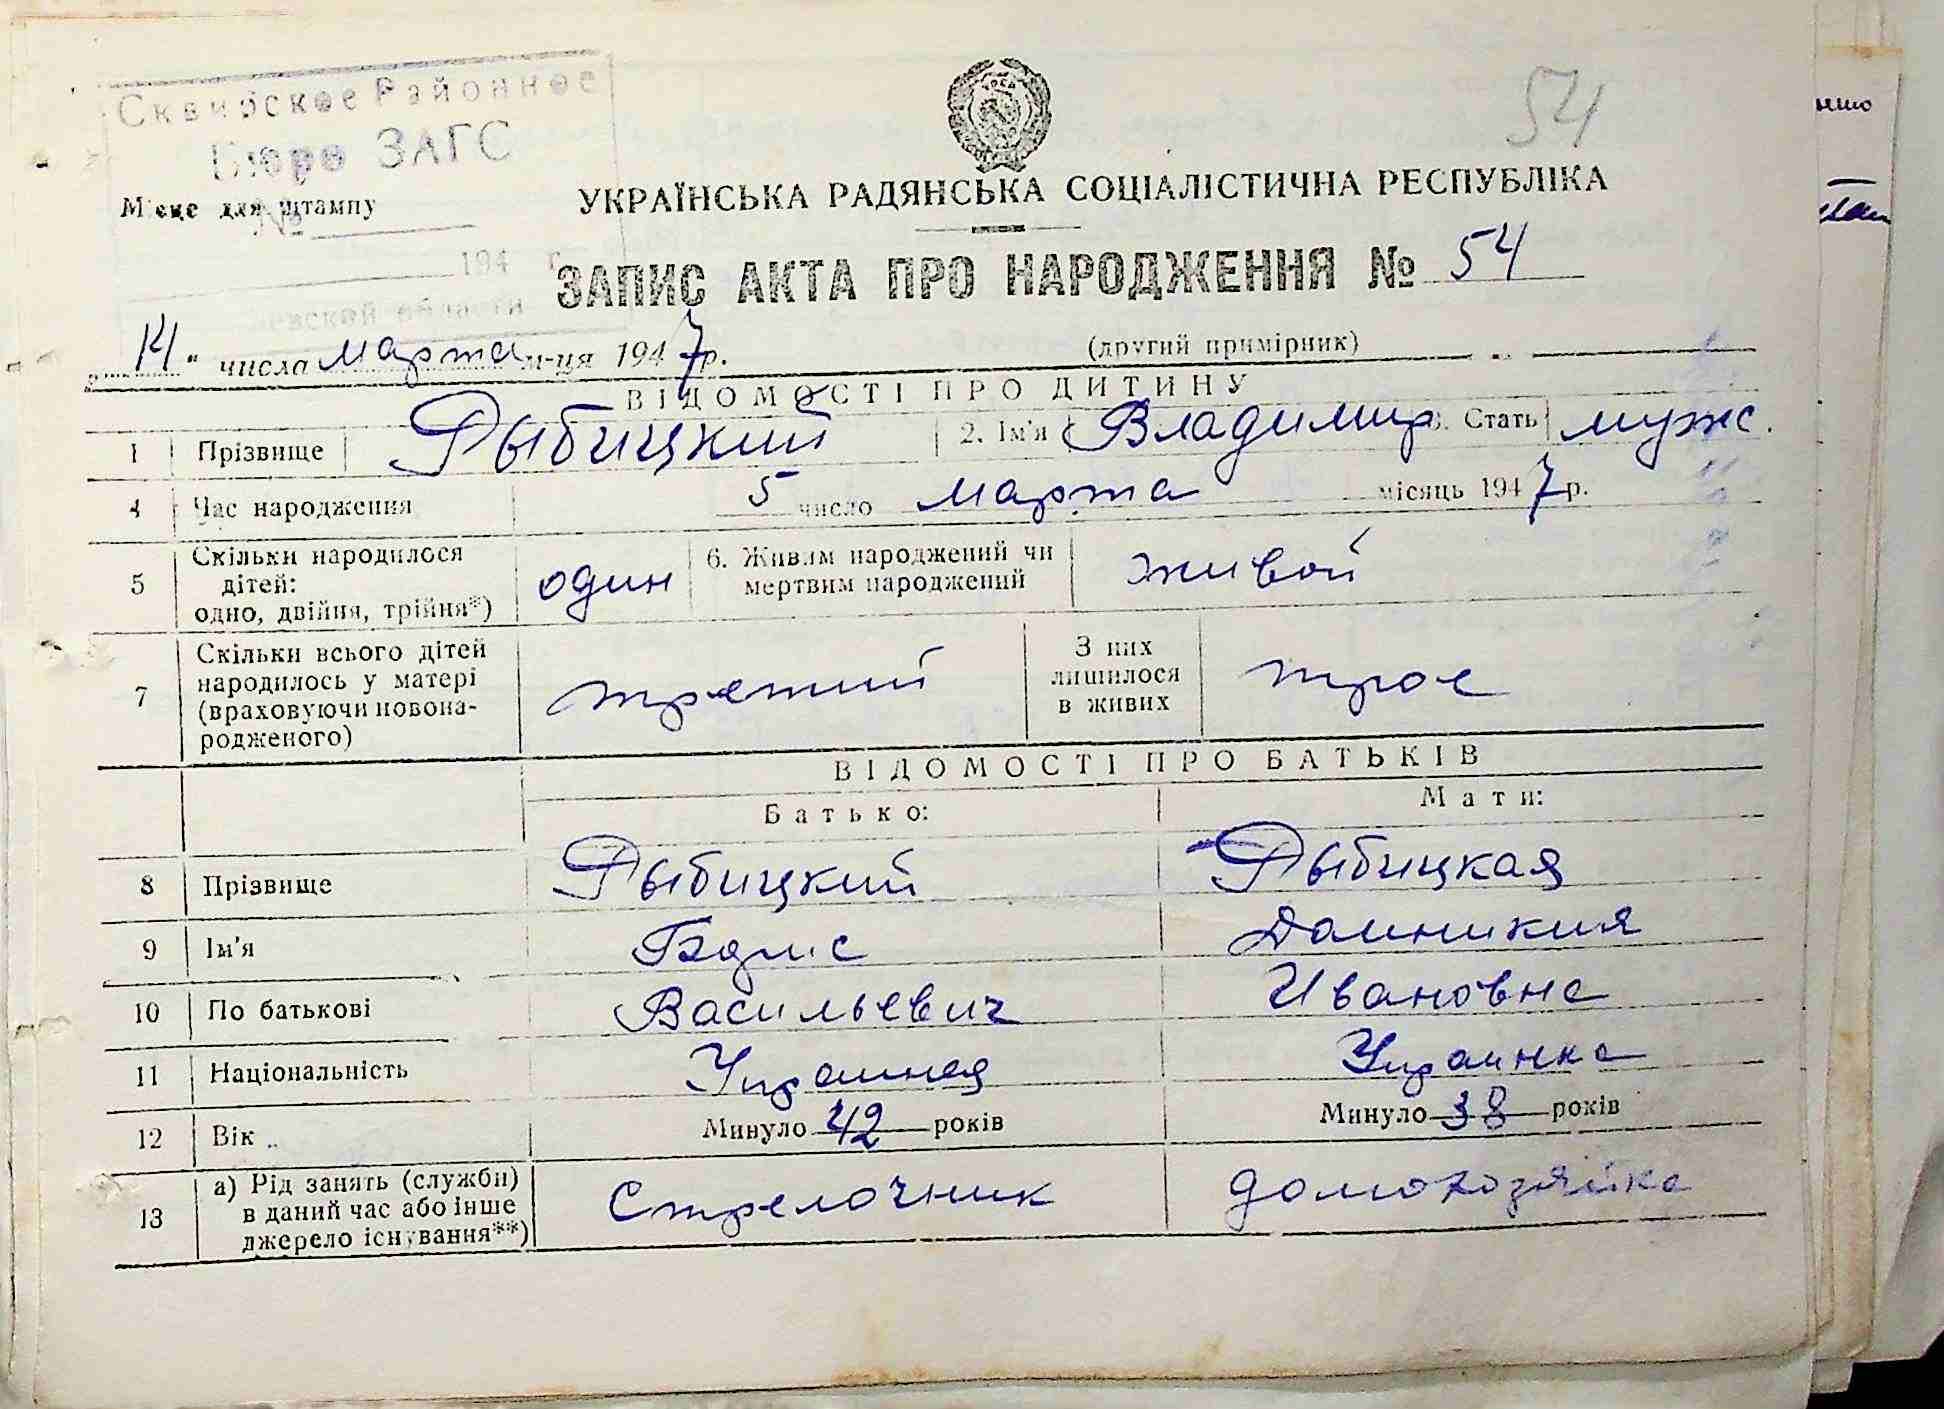 54
Сквирское Районное
Бюро ЗАГС
Місце для штампу
№
194 г.
области
УКРАЇНСЬКА РАДЯНСЬКА СОЦІАЛІСТИЧНА РЕСПУБЛІКА
ЗАПИС АКТА ПРО НАРОДЖЕННЯ № 54
„14" числа марта м-ця 1947 р.
(другий примірник)
ВІДОМОСТІ ПРО ДИТИНУ
1 Прізвище Рыбицкий 2. Ім'я Владимир 3. Стать мужс.
4 Час народження 5 число марта місяць 1947 р.
5 Скільки народилося дітей: одно, двійня, трійня*) один 6. Живим народжений чи мертвим народжений живой
7 Скільки всього дітей народилось у матері (враховуючи новонародженого) третий З них лишилося в живих трое
ВІДОМОСТІ ПРО БАТЬКІВ
Батько: Мати:
8 Прізвище Рыбицкий Рыбицкая
9 Ім'я Борис Домникия
10 По батькові Васильевич Ивановна
11 Національність Украинец Украинка
12 Вік Минуло 42 років Минуло 38 років
13 а) Рід занять (служби) в даний час або інше джерело існування**) Стрелочник домохозяйка